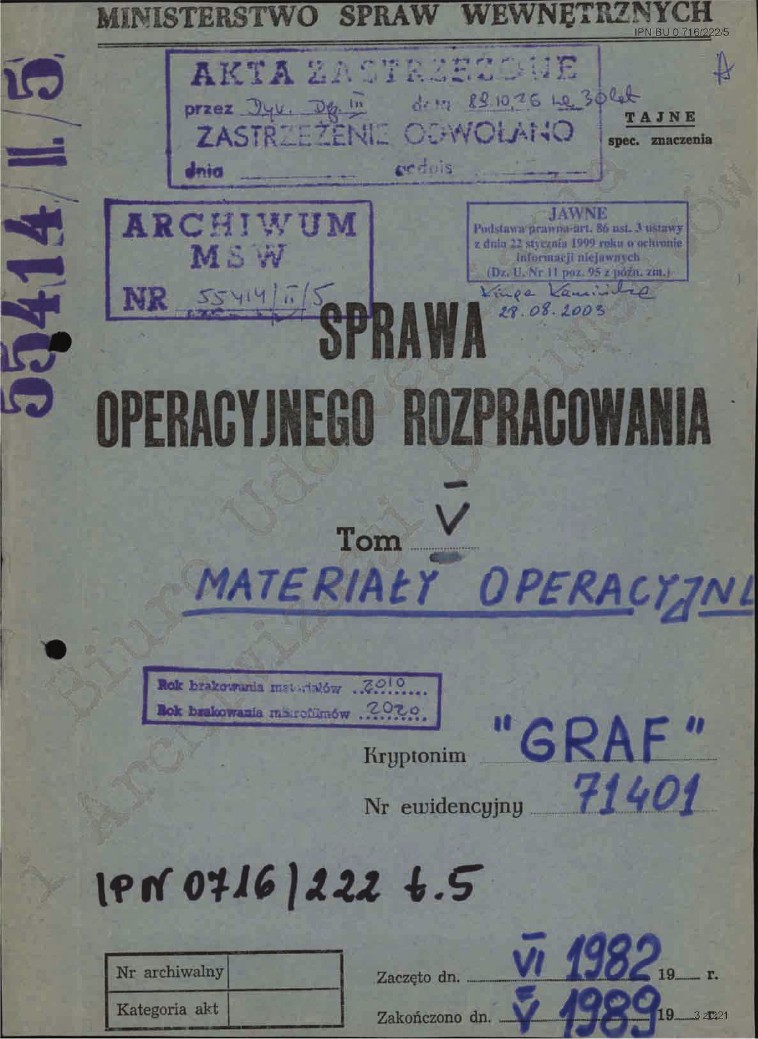 MINISTERSTWO SPRAW WEWNĘTRZNYCH
IPN BU 0 716/222/5
AKTA ZASTRZEŻONE
przez Dyr. Dep. III dnia 89.10.26 na 30 lat
ZASTRZEŻENIE ODWOŁANO
dnia podpis
TAJNE
spec. znaczenia
A
55414/II/5
ARCHIWUM
MSW
NR 55414/II/5
JAWNE
Podstawa prawna-art. 86 ust. 3 ustawy
z dnia 22 stycznia 1999 roku o ochronie
informacji niejawnych
(Dz. U. Nr 11 poz. 95 z późn. zm.)
28.08.2003
SPRAWA
OPERACYJNEGO ROZPRACOWANIA
Tom V
MATERIAŁY OPERACYJNE
Rok brakowania materiałów 2010
Rok brakowania mikrofilmów 2020
Kryptonim "GRAF"
Nr ewidencyjny 71401
IPN 0716/222 t.5
Nr archiwalny
Kategoria akt
Zaczęto dn. VI 1982 19 r.
Zakończono dn. V 1989 19 r.